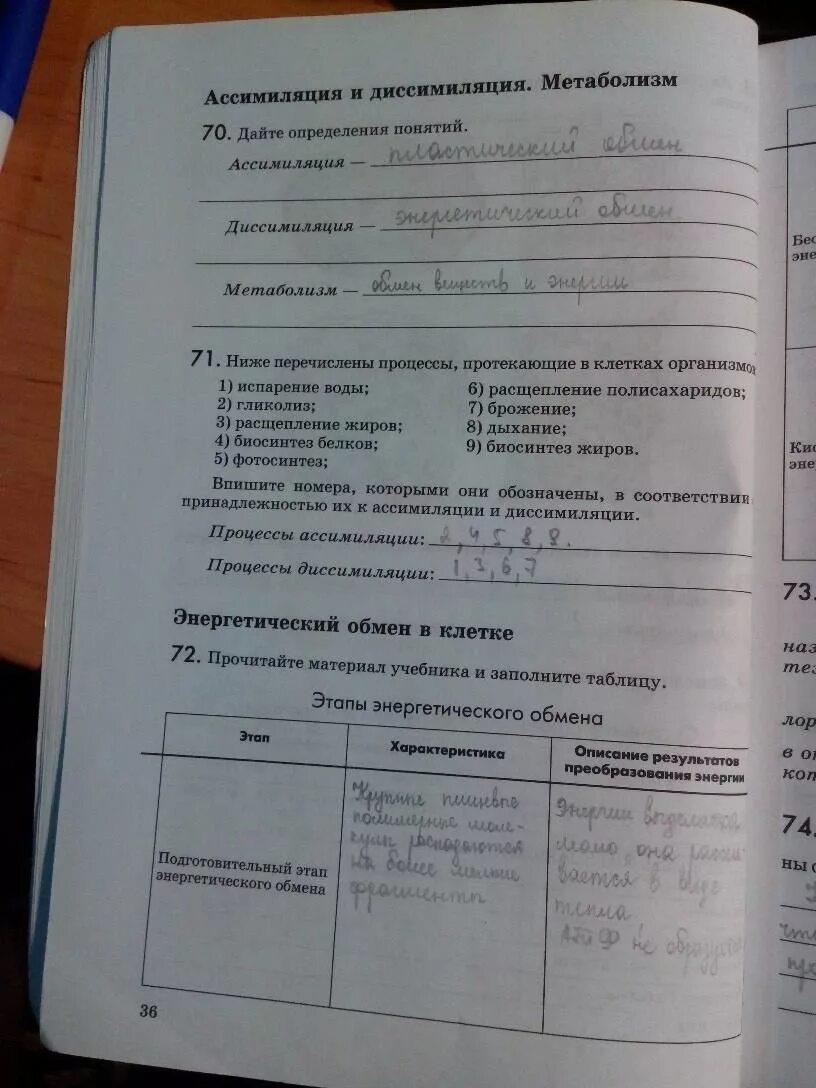 Ассимиляция и диссимиляция. Метаболизм
70. Дайте определения понятий.
Ассимиляция — пластический обмен
Диссимиляция — энергетический обмен
Метаболизм — обмен веществ и энергии
71. Ниже перечислены процессы, протекающие в клетках организмов
1) испарение воды;
2) гликолиз;
3) расщепление жиров;
4) биосинтез белков;
5) фотосинтез;
6) расщепление полисахаридов;
7) брожение;
8) дыхание;
9) биосинтез жиров.
Впишите номера, которыми они обозначены, в соответствии
принадлежностью их к ассимиляции и диссимиляции.
Процессы ассимиляции: 2, 4, 5, 8, 9.
Процессы диссимиляции: 1, 3, 6, 7
Энергетический обмен в клетке
72. Прочитайте материал учебника и заполните таблицу.
Этапы энергетического обмена
Этап
Характеристика
Описание результатов
преобразования энергии
Подготовительный этап
энергетического обмена
Крупные пищевые
полимерные моле-
кулы распадаются
на более мелкие
фрагменты
Энергии выделяется
мало, она рассеи
вается в виде
тепла
АТФ не образу
36
Бес
эне
Кис
эне
73.
наз
тез
лор
в о
кот
74.
ны с
что
про